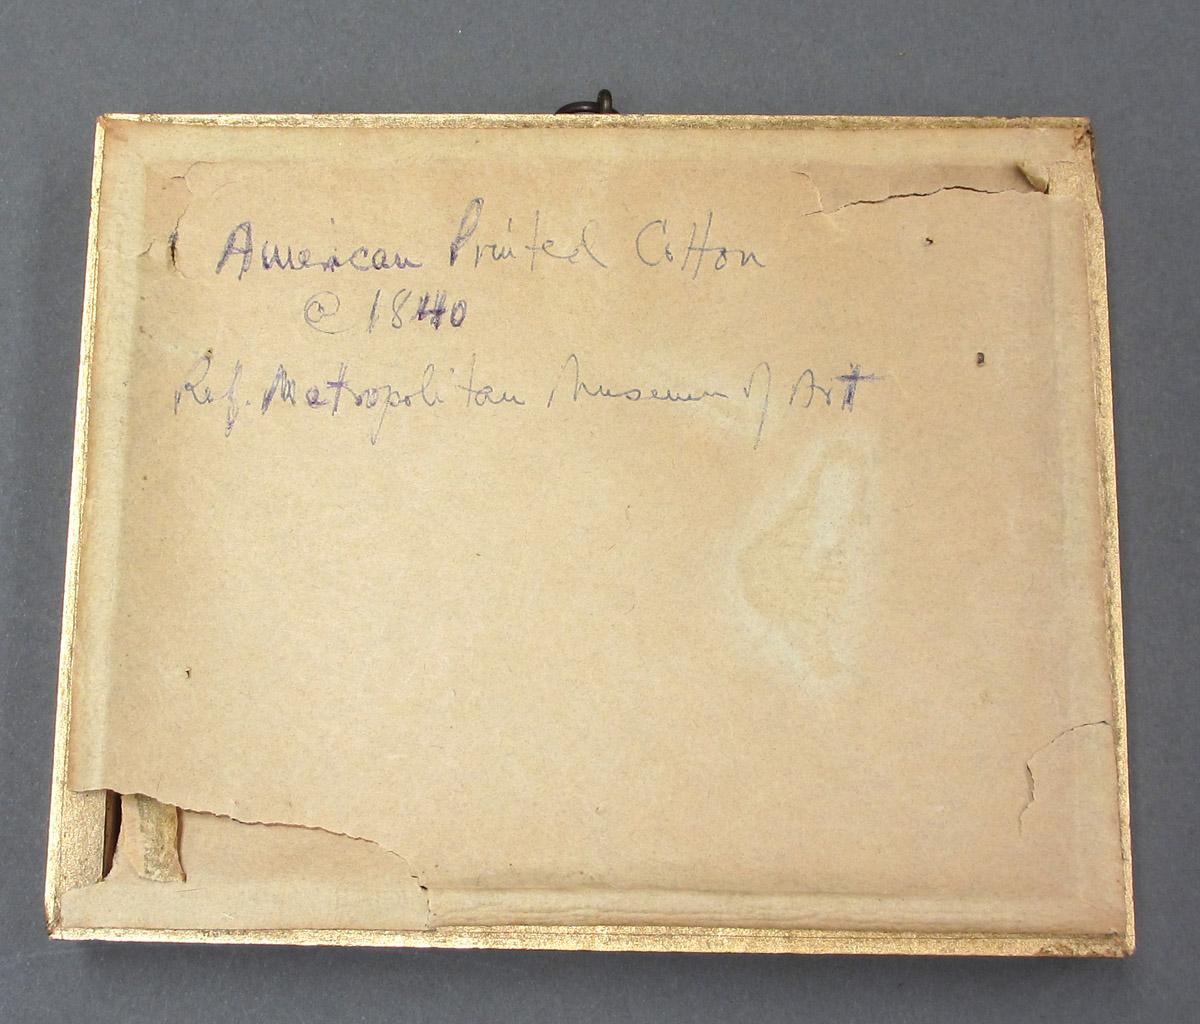 American Printed Cotton
@ 1840
Ref. Metropolitan Museum of Art